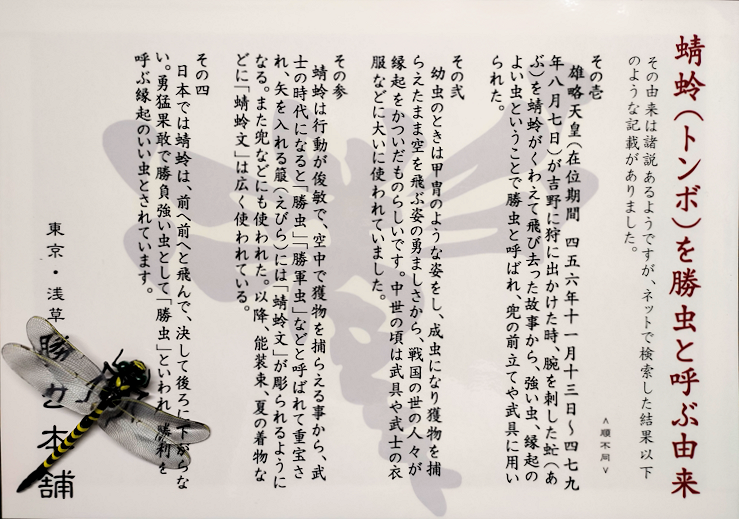 蜻蛉(トンボ)を勝虫と呼ぶ由来
その由来は諸説あるようですが、ネットで検索した結果以下
のような記載がありました。
<順不同>
その壱
雄略天皇(在位期間 四五六年十一月十三日～四七九
年八月七日)が吉野に狩に出かけた時、腕を刺した虻(あ
ぶ)を蜻蛉がくわえて飛び去った故事から、強い虫、縁起の
よい虫ということで勝虫と呼ばれ、兜の前立てや武具に用い
られた。
その弐
幼虫のときは甲冑のような姿をし、成虫になり獲物を捕
らえたまま空を飛ぶ姿の勇ましさから、戦国の世の人々が
縁起をかついだものらしいです。中世の頃は武具や武士の衣
服などに大いに使われていました。
その参
蜻蛉は行動が俊敏で、空中で獲物を捕らえる事から、武
士の時代になると「勝虫」「勝軍虫」などと呼ばれて重宝さ
れ、矢を入れる箙(えびら)には「蜻蛉文」が彫られるように
なる。また兜などにも使われた。以降、能装束、夏の着物な
どに「蜻蛉文」は広く使われている。
その四
日本では蜻蛉は、前へ前へと飛んで、決して後ろに下がらな
い。勇猛果敢で勝負強い虫として「勝虫」といわれ、勝利を
呼ぶ縁起のいい虫とされています。
東京・浅草
本舗